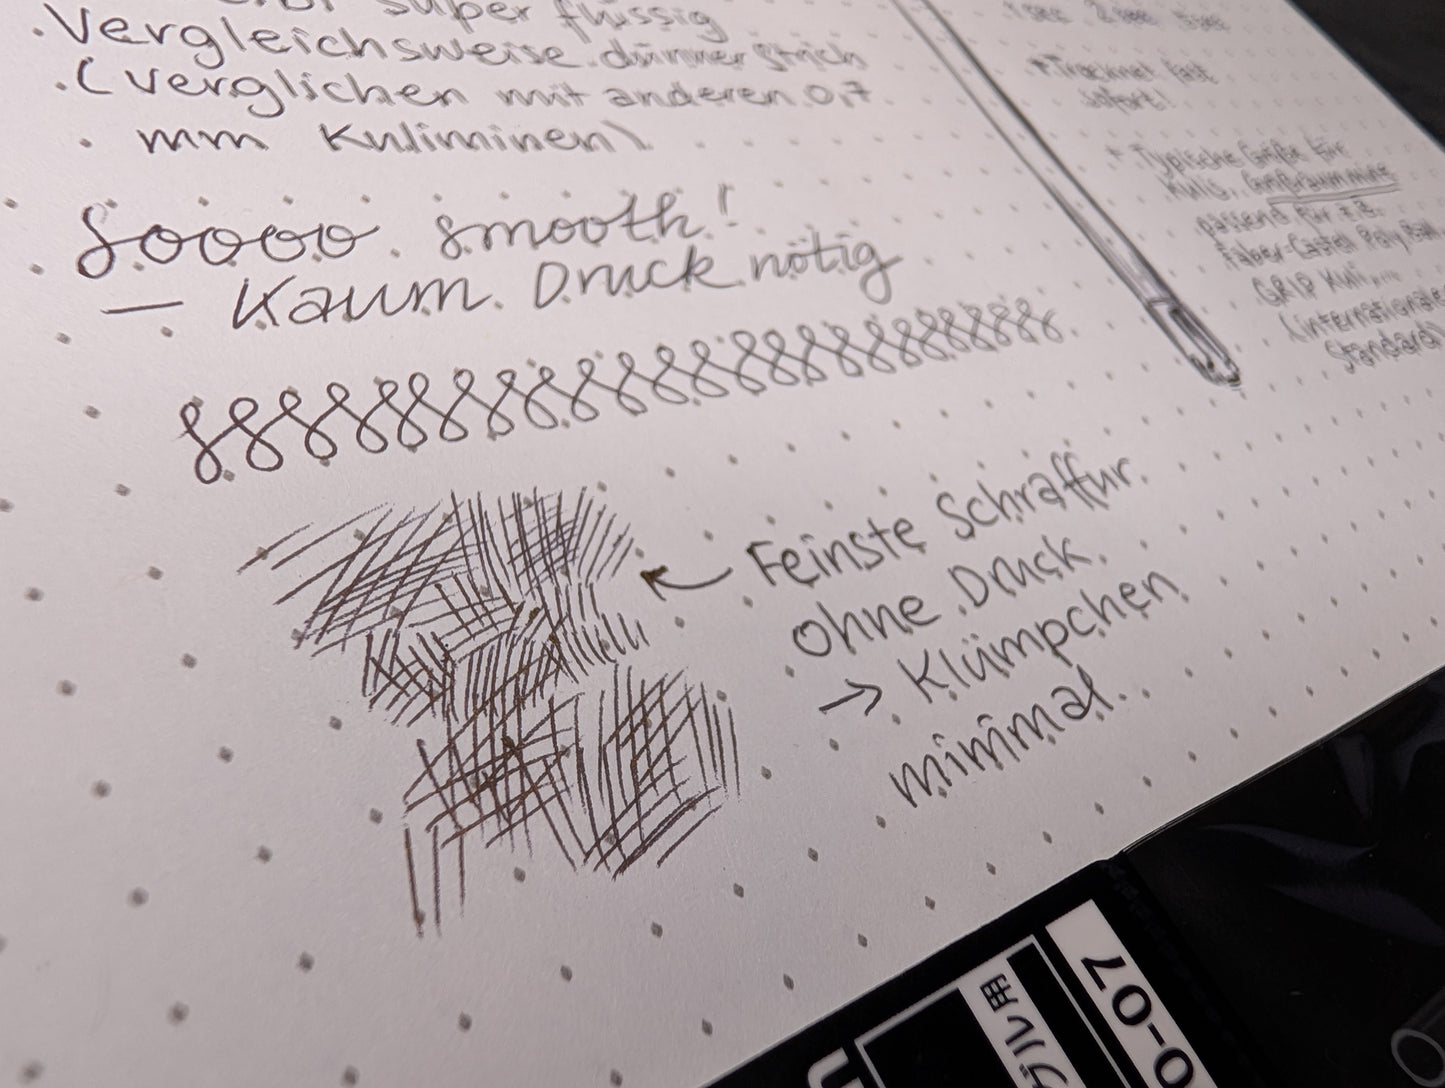 super flüssig
Vergleichsweise dünner Strich
(verglichen mit anderen 0,7
mm Kuliminen)
Soooo smooth!
— Kaum Druck nötig
← Feinste Schraffur
ohne Druck
→ Klümpchen
minimal
1 sec 2 sec
* Trocknet fast
sofort!
+ Typische Größe für
Kulis, Großraummine
passend für z.B.
Faber-Castell Poly Ball,
GRIP Kuli,...
(internationaler
Standard)
ブル用
0-07